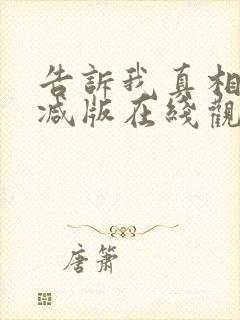 告訴我真相
減版在綫觀
唐簫